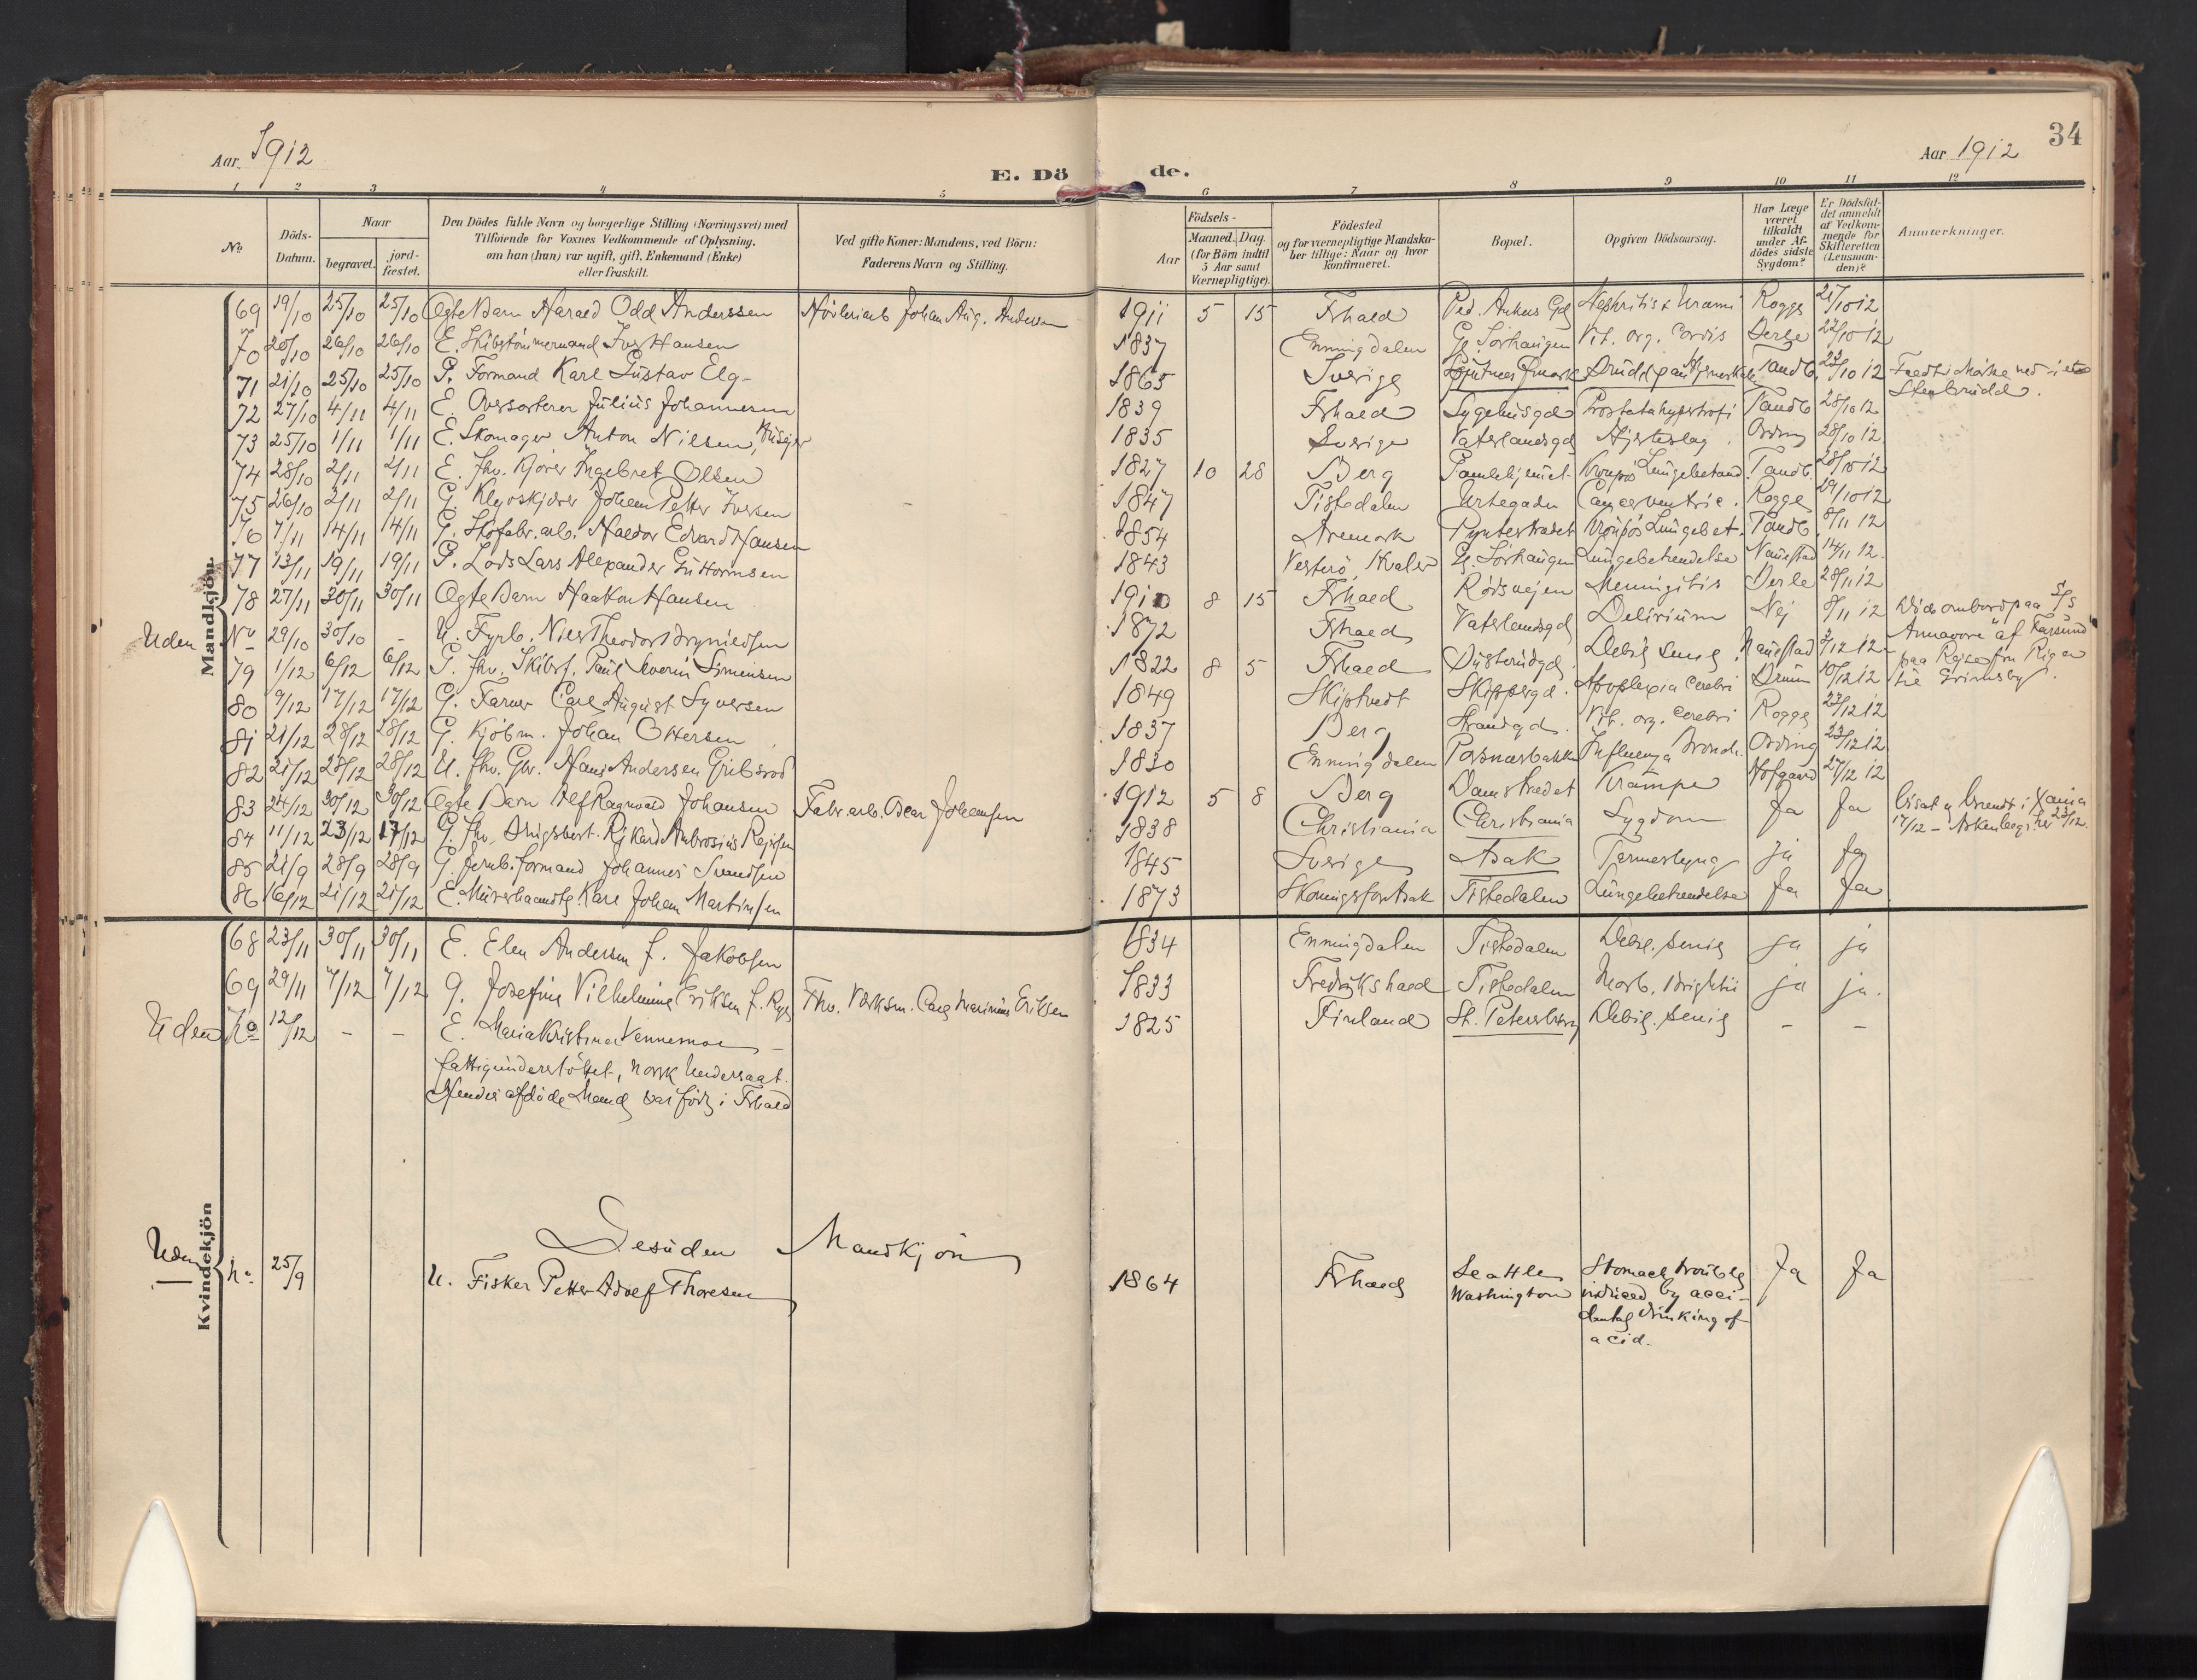 34
Aar 1912
E. Dö de.
Aar 1912
1 2 3 4 5 6 7 8 9 10 11 12
No
Döds-Datum.
Naar
begravet.
jord-fæstet.
Den Dödes fulde Navn og borgerlige Stilling (Næringsvei) med
Tilföiende for Voxnes Vedkommende af Oplysning,
om han (hun) var ugift, gift, Enkemand (Enke)
eller fraskilt.
Ved gifte Koner: Mandens, ved Börn:
Faderens Navn og Stilling.
Födsels-
Aar
Maaned. Dag.
(for Börn indtil
5 Aar samt
Værnepligtige).
Födested
og for værnepligtige Mandska-
ber tillige: Naar og hvor
konfirmeret.
Bopæl.
Opgiven Dödsaarsag.
Har Læge
været
tilkaldt
under Af-
dödes sidste
Sygdom?
Er Dödsfal-
det anmeldt
af Vedkom-
mende for
Skifteretten
(Lensman-
den)?
Anmærkninger.
Mandkjön.
69 19/10 25/10 25/10 Ægte Barn Harald Odd Anderssen Høvleriarb Johan Aug. Andersen 1911 5 15 Fr.hald Ped. Ankers Gd Nephritis & Urami Rogge 21/10 12
70 20/10 26/10 26/10 E. Skibstømmermand Iver Hansen 1837 Enningdalen Gl. Sørhaugen Vit. org. Cordis Derle 22/10 12
71 21/10 25/10 25/10 G. Formand Karl Gustav Elg 1865 Sverige Tandb. 23/10 12
72 27/10 4/11 4/11 E. Oversorterer Julius Johannesen 1839 Fr.hald Sygehusgd Prostatahypertrofi Tandb 28/10 12
73 25/10 1/11 1/11 E. Skomager Anton Nilsen, Huseier 1835 Sverige Vaterlandsgd Hjerteslag. Ording 28/10 12
74 28/10 2/11 2/11 E. fhv. Kjører Ingebret Olsen 1827 10 28 Berg Gamlehjemmet Lungebetænd. Tandb. 28/10 12
75 26/10 2/11 2/11 G. Johan Petter Iversen 1847 Tistedalen Urtegaden Cancer ventric. Rogge 29/10 12
76 7/11 14/11 14/11 G. Skofabr.arb. Haldor Edvard Hansen 1854 Aremark Lungebet. Tandb. 8/11 12
77 13/11 19/11 19/11 G. Lods Lars Alexander Guttormsen 1843 Vesterö, Hvaler Gl. Sørhaugen Lungebetændelse Naustad 14/11 12.
78 27/11 30/11 30/11 Ægte Barn Haakon Hansen 1910 8 15 Fr.hald Rødsvejen Meningitis Derle 28/11 12
Uden No 29/10 30/10 - U. Fyrb. Nils Theodor Brynildsen 1872 Fr.hald Vaterlandsgd Delirium Nej 8/11 12 Døde ombord paa S/S
af Farsund
paa Rejse fra Riga
til Grimsby.
79 1/12 6/12 6/12 G. fhv. Skibsf. Paul Severin Simensen 1822 8 5 Fr.hald Debil. senil. Naustad 3/12 12
80 9/12 17/12 17/12 G. Farver Carl August Syversen 1849 Skiptvedt Skippergd. Apoplexia Cerebri Drum 10/12 12
81 21/12 28/12 28/12 G. Kjøbm. Johan Ottersen 1837 Berg Strandgd. Vit. org. Cerebri Rogge 23/12 12
82 21/12 28/12 28/12 U. fhv. Gbr. Hans Andersen Gribsrød 1830 Enningdalen Influenza Bronch. Ording 23/12 12
83 24/12 30/12 30/12 Ægte Barn Alf Ragnvald Johansen Fabr.arb. Oscar Johansen 1912 5 8 Berg Damstrædet Krampe Hofgaard 27/12 12
84 11/12 23/12 17/12 G. fhv. Rikard Ambrosius 1838 Christiania Christiania Sygdom Ja Ja
85 21/9 28/9 28/9 G. Jernb.formand Johannes Svendsen 1845 Sverige Asak ja ja
86 16/12 21/12 21/12 E. Murerhaandtl. Karl Johan Martinsen 1873 Skonningsfos Asak Tistedalen Lungebetændelse Ja Ja
Kvindekjön
68 23/11 30/11 30/11 E. Elen Andersen f. Jakobsen 1834 Enningdalen Tistedalen Debil. senil ja ja
69 29/11 7/12 7/12 G. Josefine Vilhelmine Eriksen f. Fhv. Værksm. Carl Marinius Eriksen 1833 Fredrikshald Tistedalen Morb. Brightii ja ja.
Uden No 12/12 - - E. Maria Kristina Vennemoe 1825 Finland St. Petersburg Debil. senil - -
fattigunderstøttet, norsk Undersaat.
Hendes afdøde Mand var født i Fr.hald
Desuden Mandkjøn
Uden No 25/9 U. Fisker Petter Adolf Thoresen 1864 Fr.hald Seattle
Washington Stomach trouble
induced by acci-
dental drinking of
acid. Ja Ja